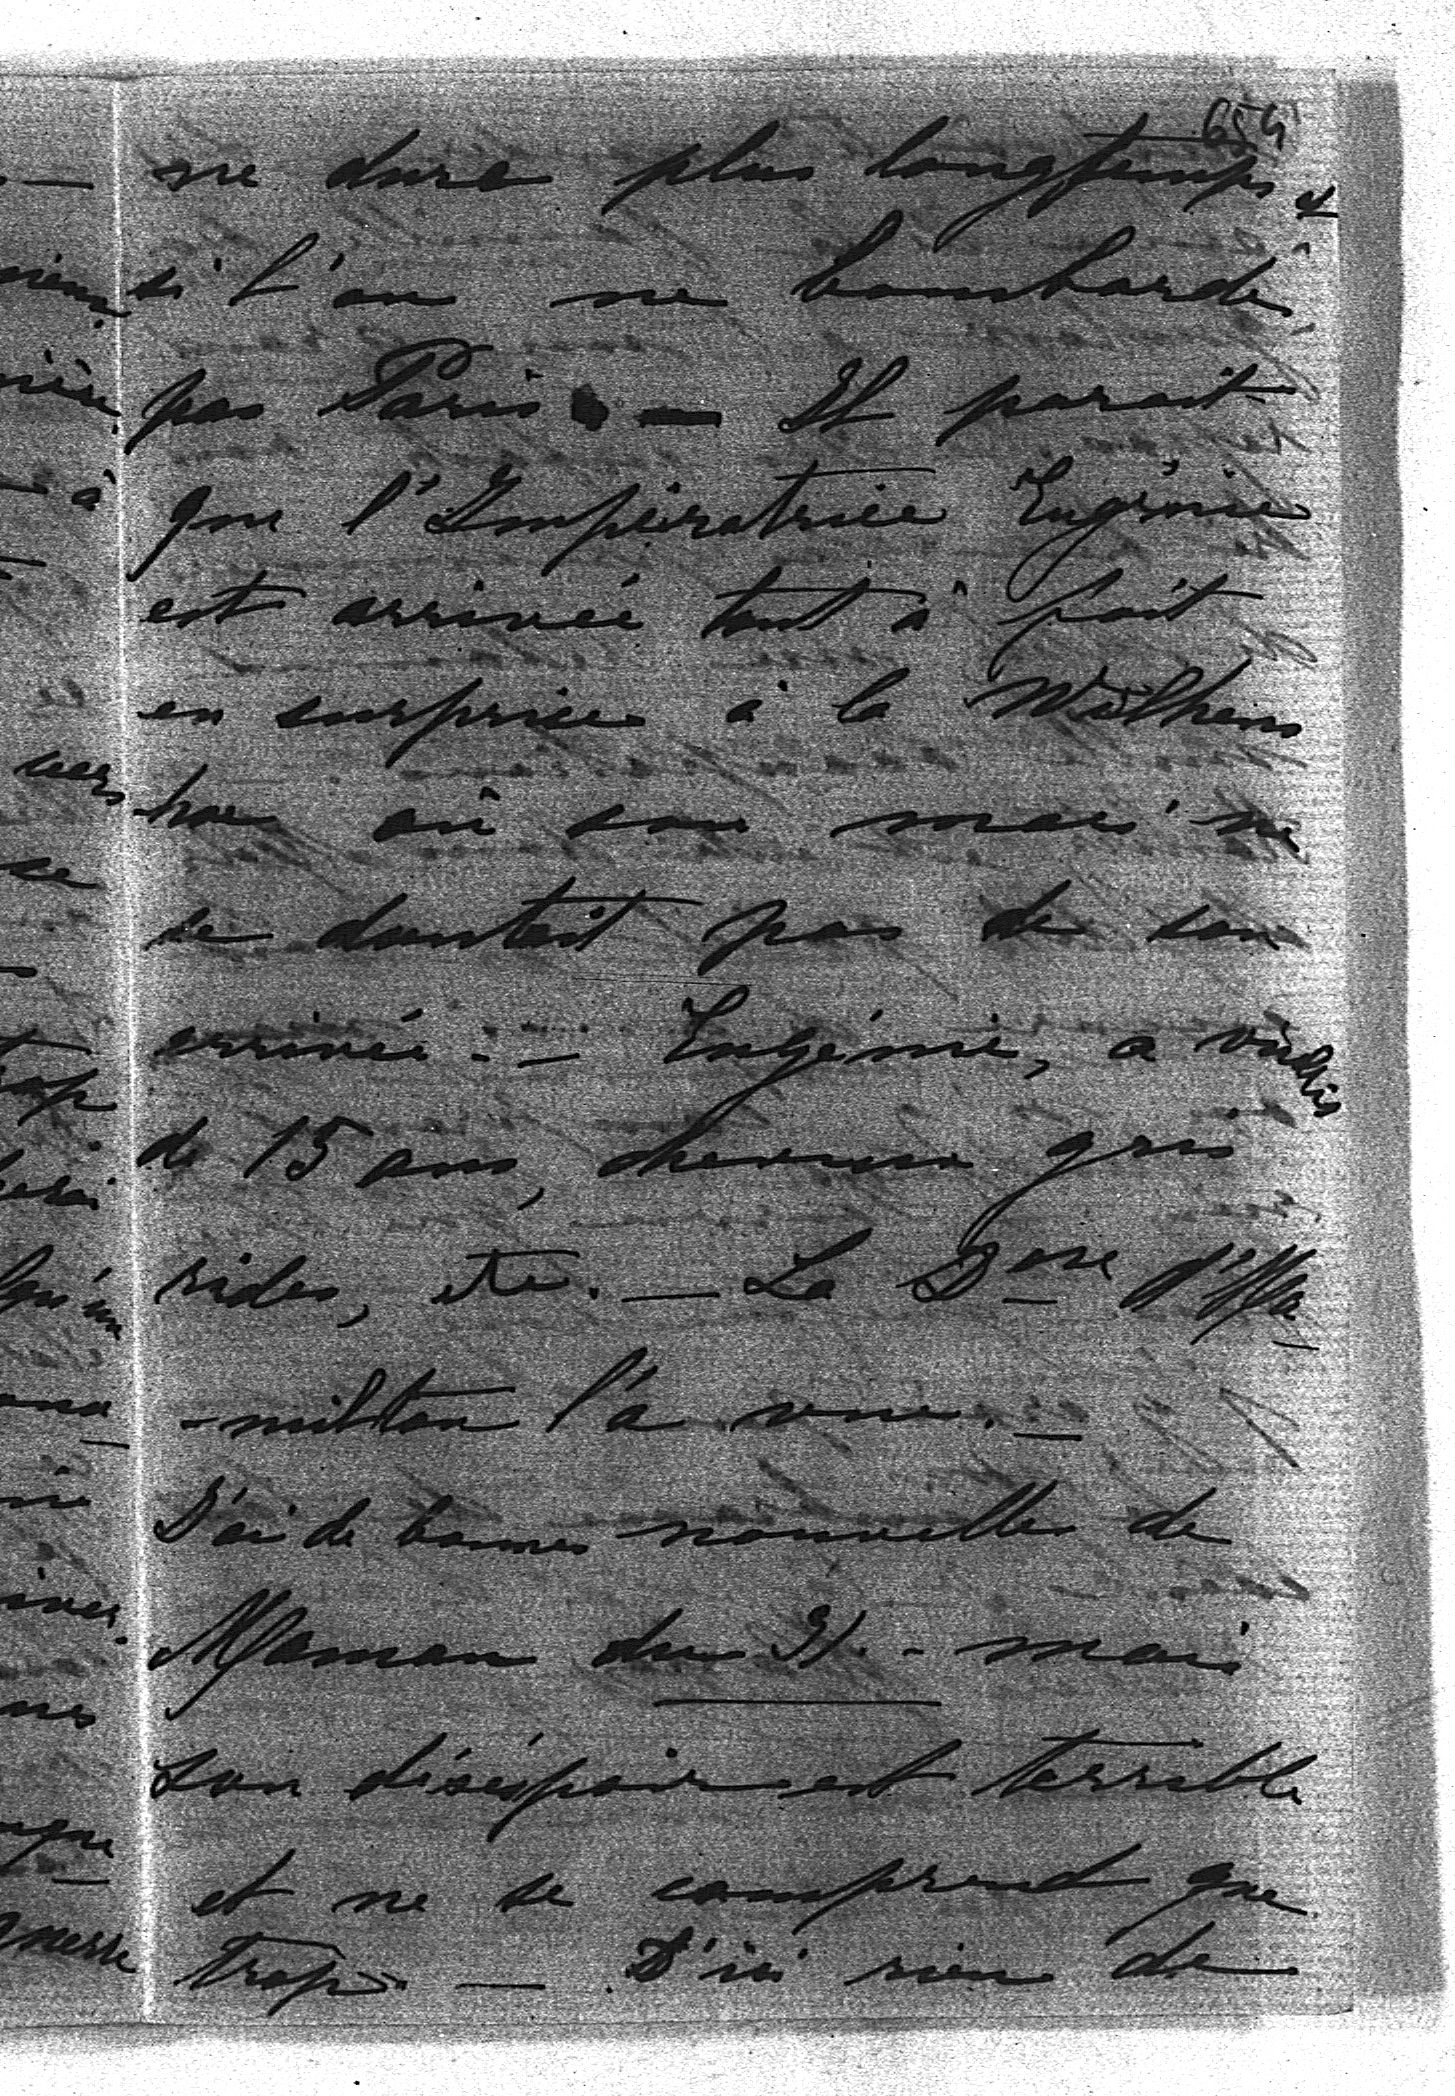 654
ne dure plus longtemps &
si l'on ne bombarde
pas Paris. — Il parait
que l'Impératrice Eugénie
est arrivée tout à fait
en surprise à la Wilhems
-hoe où son mari ne
se doutait pas de son
arrivée. — Eugénie, a vieillie
de 15 ans, cheveux gris
rides, etc. — La Dsse d'Ha
-milton l'a vue. —
J'ai de bonnes nouvelles de
Maman du 31. - mais
son désespoir est terrible
et ne se comprend que
trop. — D'ici rien de